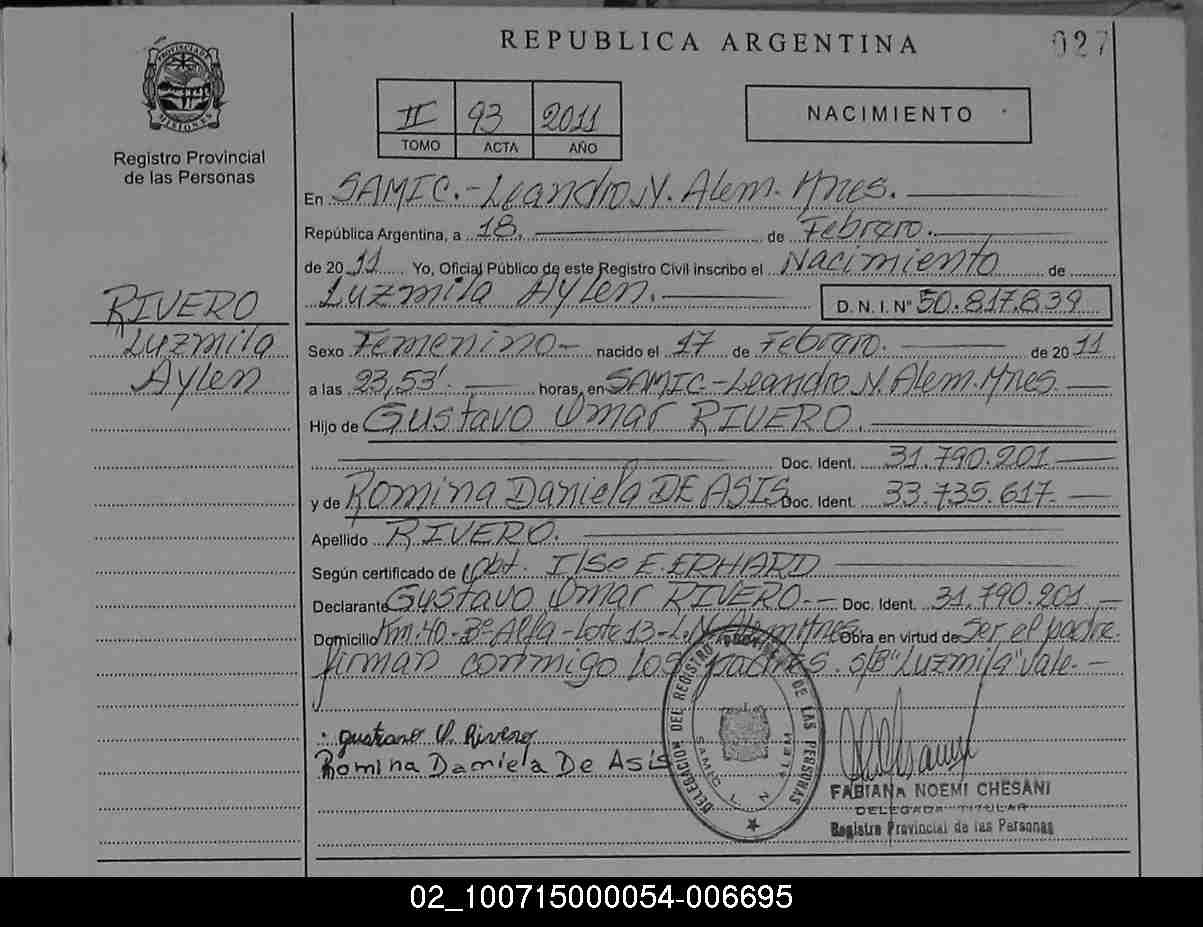 REPUBLICA ARGENTINA
027
PROVINCIA DE MISIONES
Registro Provincial
de las Personas
II 93 2011
TOMO ACTA AÑO
NACIMIENTO
En SAMIC.-Leandro N. Alem. Mnes.
República Argentina, a 18, de Febrero.
de 2011 Yo, Oficial Público de este Registro Civil inscribo el Nacimiento de
Luzmila Aylen. D. N. I. Nº 50.817.839
RIVERO
Luzmila
Aylen
Sexo Femenino- nacido el 17 de Febrero. de 2011
a las 23,53'. horas, en SAMIC-Leandro N. Alem. Mnes.
Hijo de Gustavo Omar RIVERO.
Doc. Ident. 31.790.201
y de Romina Daniela DE ASIS Doc. Ident. 33.735.617.
Apellido RIVERO.
Según certificado de Obt. Ilse E. ERHARD
Declarante Gustavo Omar RIVERO-- Doc. Ident. 31.790.201
Domicilio Km. 40-Bº Alfa-Lote 13-L.N. Alem Mnes Obra en virtud de Ser el padre.
firman conmigo los padres. s/B "Luzmila" vale.-
Gustavo O. Rivero
Romina Daniela De Asis
DELEGACION DEL REGISTRO PROVINCIAL DE LAS PERSONAS
SAMIC L. N. ALEM
FABIANA NOEMI CHESANI
DELEGADA TITULAR
Registro Provincial de las Personas
02_100715000054-006695